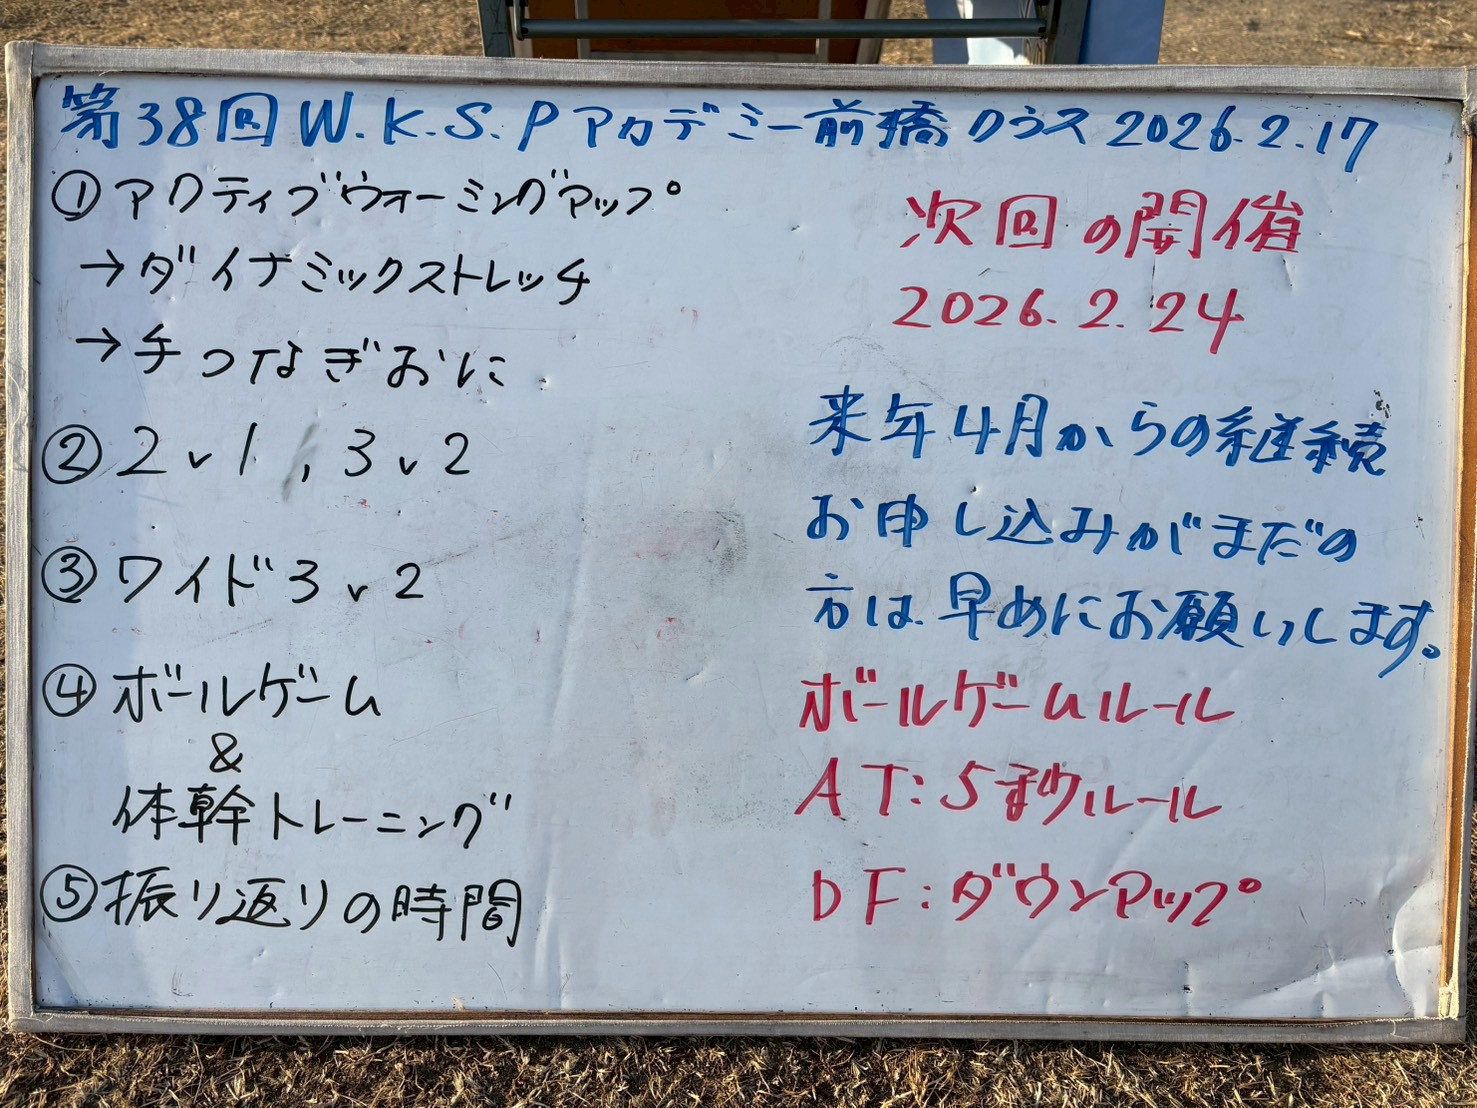 第38回W.K.S.Pアカデミー前橋クラス2026.2.17
①アクティブウォーミングアップ
→ダイナミックストレッチ
→手つなぎおに
②2v1,3v2
③ワイド3v2
④ボールゲーム
&
体幹トレーニング
⑤振り返りの時間
次回の開催
2026.2.24
来年4月からの継続
お申し込みがまだの
方は早めにお願いします。
ボールゲームルール
AT:5秒ルール
DF:ダウンアップ